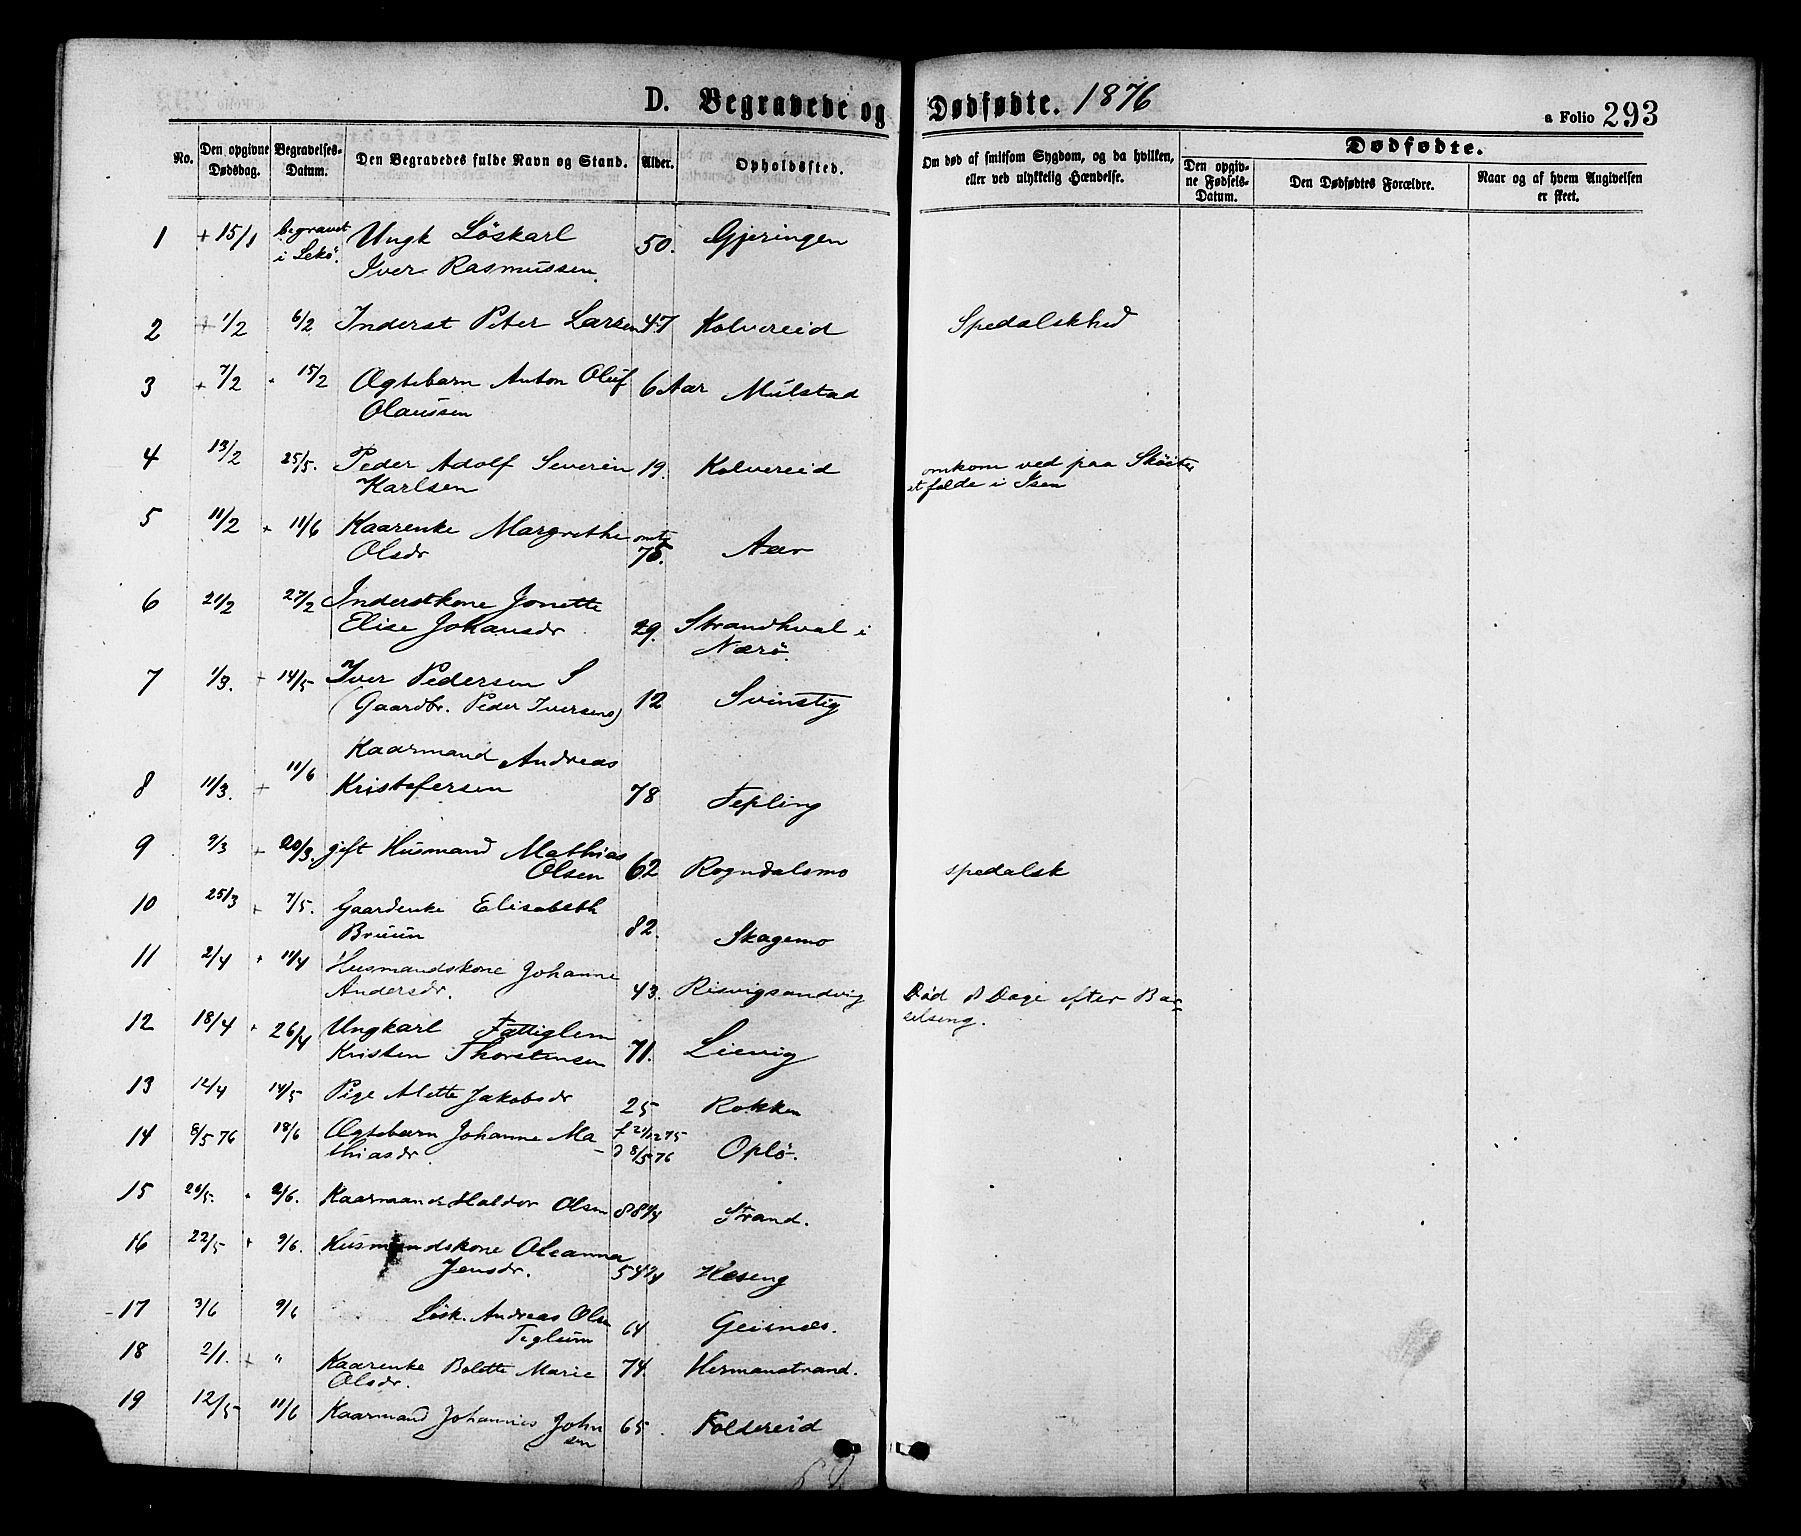 D. Begravede og Dødfødte. 1876
a Folio 293
No. Den opgivne Dødsdag. Begravelses-Datum. Den Begravedes fulde Navn og Stand. Alder. Opholdssted. Om død af smitsom Sygdom, og da hvilken, eller ved ulykkelig Hændelse. Dødfødte. Den opgivne Fødsels-Datum. Den Dødfødtes Forældre. Naar og af hvem Angivelsen er skeet.
1 + 15/1 begravet Ungk Löskarl 50. Gjeringen
i Lekö. Iver Rasmussen.
2 + 1/2 6/2 Inderst Peter Larsen 47 Kolvereid Spedalskhed
3 + 7/2 15/2 Ægtebarn Anton Oluf 6 Aar Mulstad
Olaussen
4 13/2 25/5. Peder Adolf Severin 19. Kolvereid omkom ved paa Sköiter
Karlsen at falde i Isen
5 11/2 + 11/6 Kaarenke Margrethe omtr 75. Aar
Olsdr
6 21/2 27/2 Inderstkone Jonette
Elise Johansdr 29. Strandhval i
Nærö.
7 1/3. + 14/5 Iver Pedersen S
(Gaardbr. Peder Iversens) 12 Svinstig
8 11/3. + 11/6 Kaarmand Andreas
Kristofersen 78 Tepling
9 9/3 + 20/3. gift Husmand Mathias
Olsen 62 Rogndalsmo spedalsk
10 25/3 + 7/5. Gaardenke Elisabeth
Bruun 82. Skagemo
11 2/4 + 11/4 Husmandskone Johanne
Andersdr. 43. Risvigsandvig Död 8 Dage efter Bar-
selseng.
12 18/4 + 26/4 Ungkarl Fattiglem
Kristen Thorstensen 71. Lievig
13 12/4 14/5 Pige Alette Jakobsdr 25 Rokken
14 8/5 76 18/6 Ægtebarn Johanne Ma- f 21/12 75
thiasdr d 8/5 76 Oplö.
15 20/5. 2/6. Kaarmand Haldor Olsen 88 3/4 Strand.
16 22/5 + 9/6. Husmandskone Oleanna
Jensdr. 54 2/4 Heseng
17 3/6 9/6 Lösk. Andreas Olsn
Teglum 64 Geisnæs.
18 2/1. + " Kaarenke Bolette Marie 74. Hermanstrand.
Olsdr.
19 12/5 11/6 Kaarmand Johannes John
sen 65. Foldereid